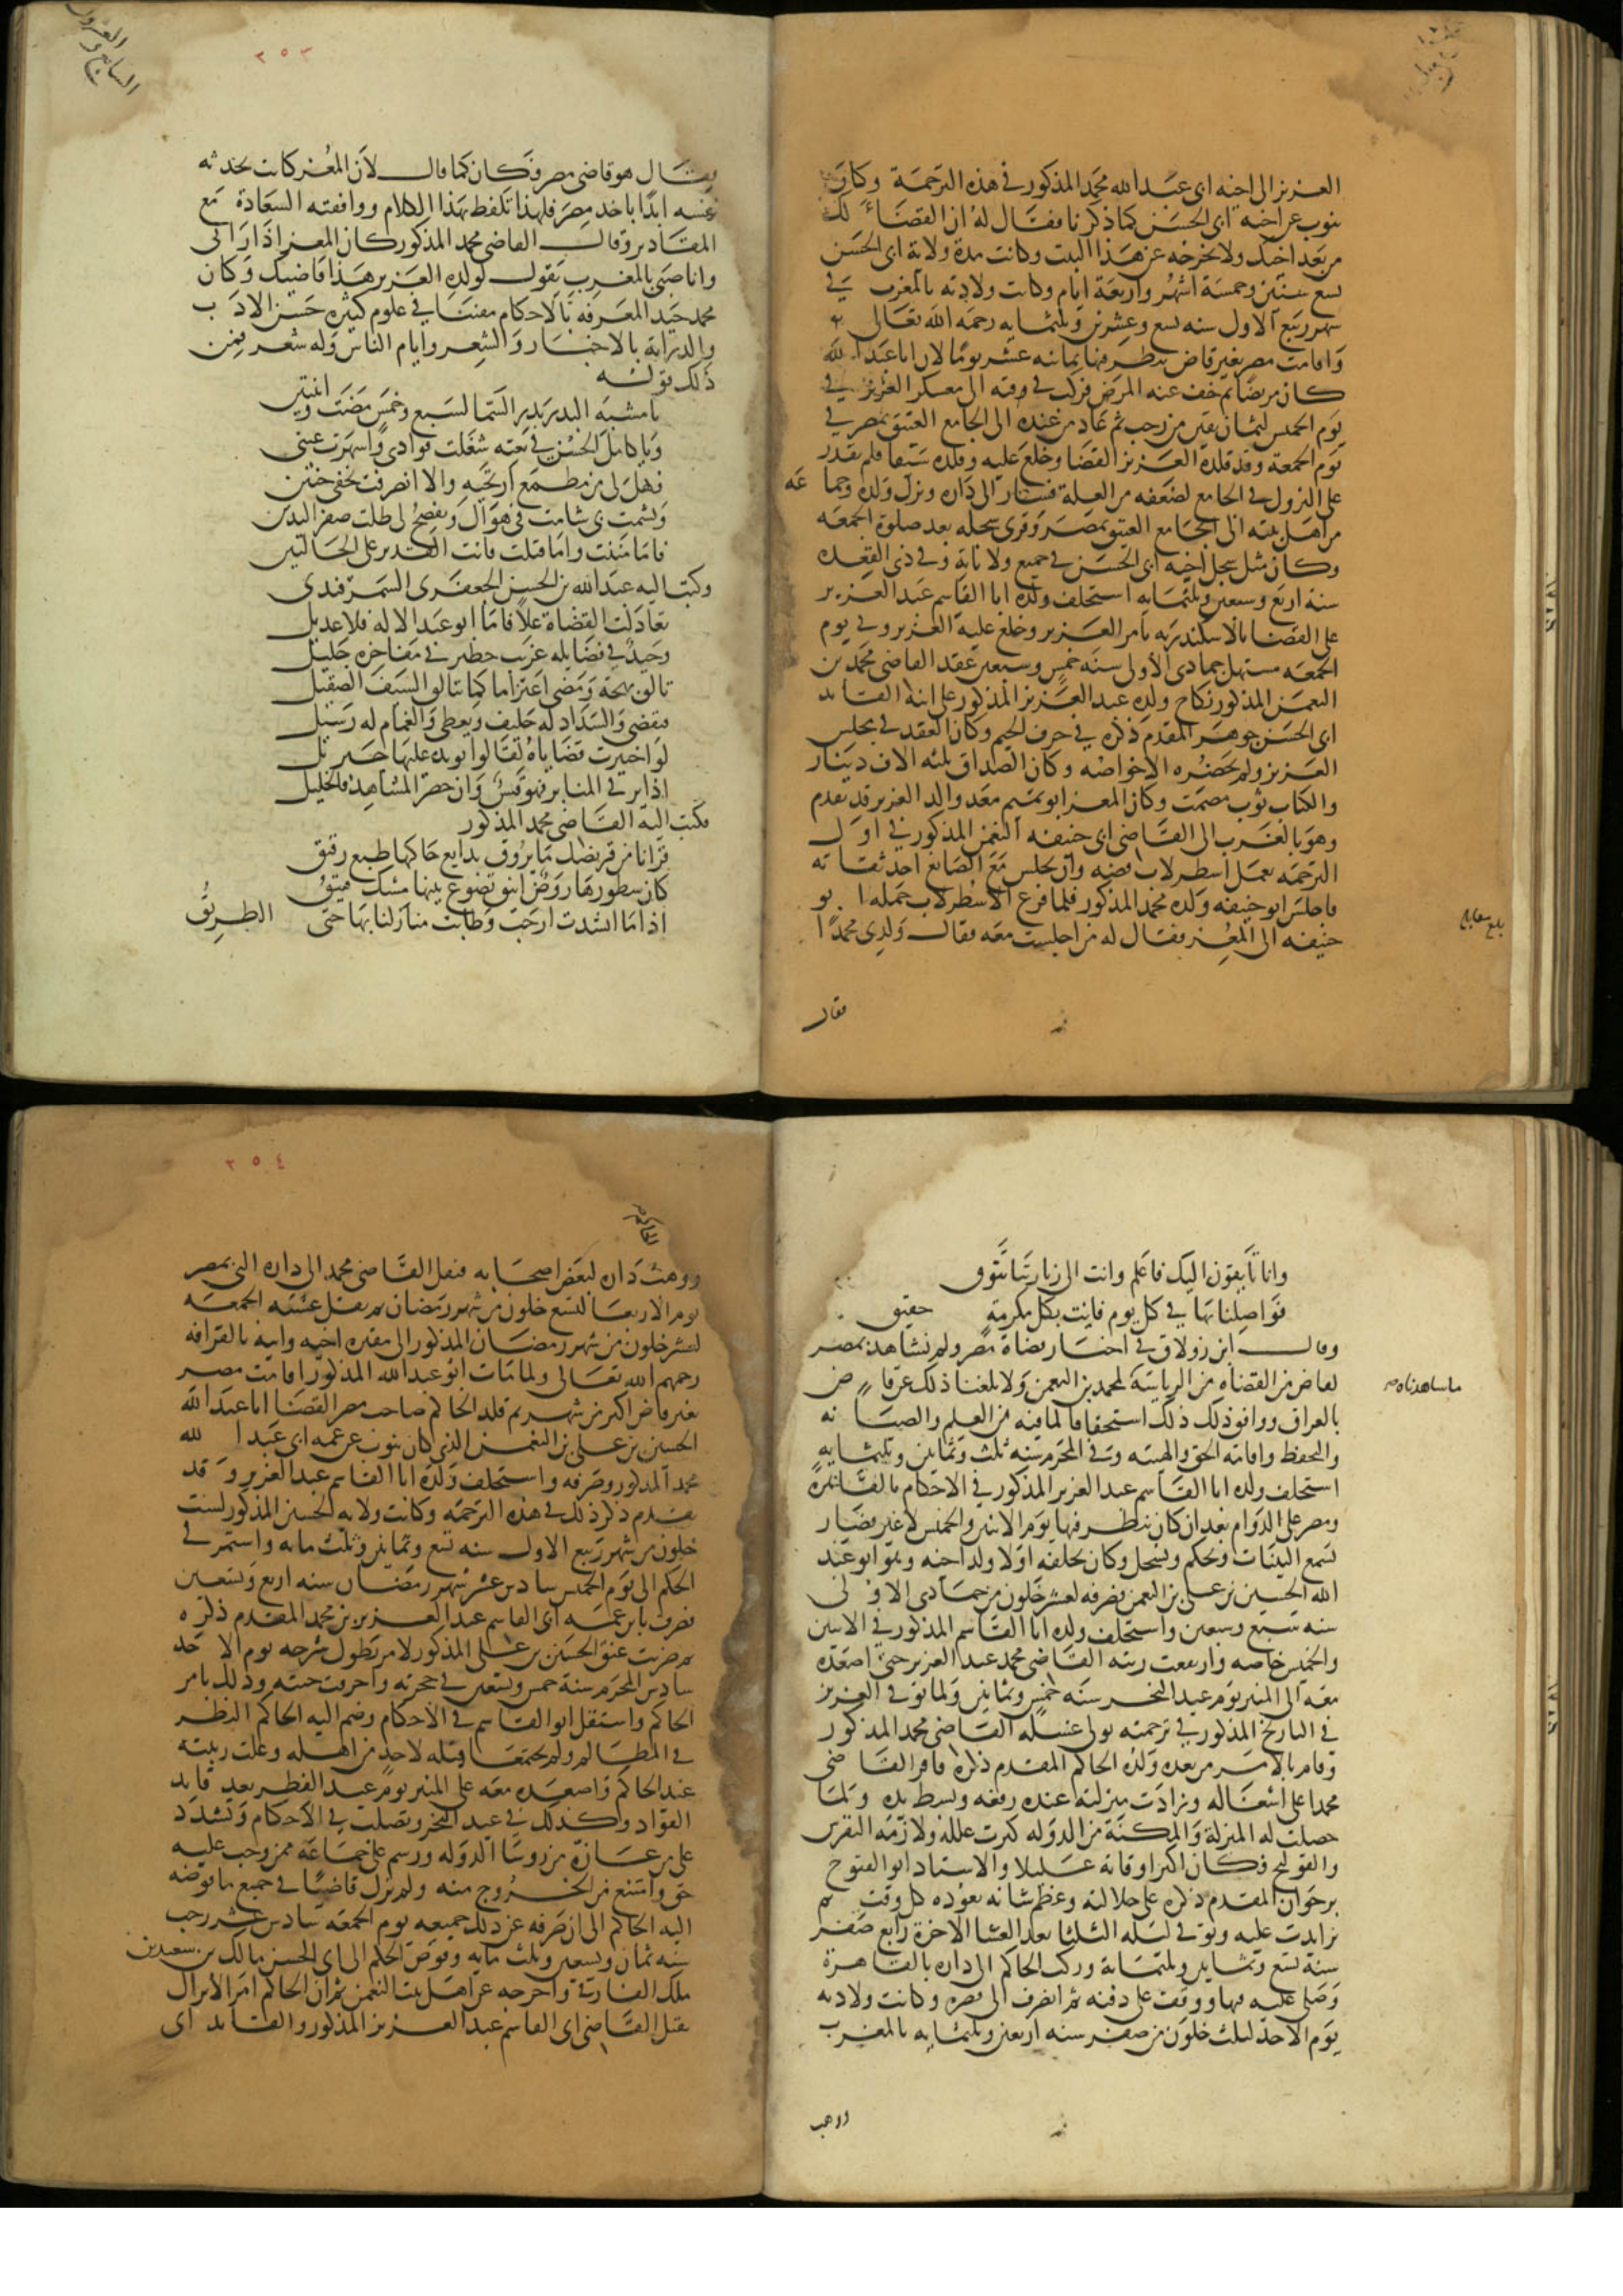 العزيز الى اخيه ابى عبد الله محمد المذكور فى هذه الترجمة وكان
ينوب عن اخيه ابى الحسن كما ذكرنا فقال له ان القضاء لك
من بعد اخيك ولا نخرجه عن هذا البيت وكانت مدة ولاية ابى الحسن
تسع سنين وخمسة اشهر واربعة ايام وكانت ولادته بالمغرب فى
شهر ربيع الاول سنه تسع وعشرين وثلثمايه رحمه الله تعالى
واقامت مصر بغير قاض ينظر فيها ثمانيه عشر يوما لان ابا عبد الله
كان مريضا ثم خف عنه المرض فركب فى الى معسكر العزيز فى
يوم الخميس لثمان بقين من رجب ثم عاد من عنده الى الجامع العتيق بمصر فى
يوم الجمعة وقد قلده العزيز القضا وخلع عليه وقلده سيفا فلم يقدر
على النزول فى الجامع لضعفه من العلة فسار الى داره ونزل ولده وجماعه
من اهل بيته الى الجامع العتيق بمصر وقرى سجله بعد صلوة الجمعه
وكان مثل سجل اخيه ابى الحسن فى جميع ولاياته وفى ذى القعده
سنه اربع وسبعين وثلثمايه استخلف ولده ابا القاسم عبد العزيز
على القضا بالاسكندريه بامر العزيز وخلع عليه العزيز وفى يوم
الجمعه مستهل جمادى الاولى سنه خمس وسبعين عقد القاضى محمد بن
النعمن المذكور نكاح ولده عبد العزيز المذكور على ابنة القائد
ابى الحسن جوهر المقدم ذكره فى حرف الجيم وكان العقد فى مجلس
العزيز ولم يحضره الا خواصه وكان الصداق ثلثه الاف دينار
والكتاب ثوب مصمت وكان المعز ابو تميم معد والد العزيز قد تقدم
وهو بالغرب الى القاضى ابى حنيفه النعمن المذكور فى اول
الترجمه بعمل اسطرلاب فضه وان يجلس مع الصايغ احد ثقاته
فاجلس ابو حنيفه ولده محمد المذكور فلما فرغ الاسطرلاب حمله ابو
حنيفه الى المعز فقال له من اجلست معه فقال ولدى محمدا
بلغ مقابله
فقال
٢٥٣
فقال هو قاضى مصر فكان كما قال لان المعز كانت تحدثه
نفسه ابدا باخد مصر فلهذا تلفظ بهذا الكلام ووافقته السعادة مع
المقادير وقال القاضى محمد المذكور كان المعز اذا رانى
وانا صبى بالمغرب يقول لولده العزيز هذا قاضيك وكان
محمد جيد المعرفه بالاحكام مفننا فى علوم كثيره حسن الادب
والدراية بالاخبار والشعر وايام الناس وله شعر فمن
ذلك قوله
يا مشبه البدر بدر السما لسبع وخمس مضت واثنتين
ويا كامل الحسن فى نعته شغلت فوادى واسهرت عينى
فهل لى من مطمع ارتجيه والا انصرفت بخفى حنين
ويشمت بى شامت فى هواك ويفصح لى ظلت صفر اليدين
فاما مننت واما قتلت فانت القدير على الحالتين
وكتب اليه عبد الله بن الحسن الجعفرى السمرقندى
تعادلت القضاة علا فاما ابو عبد الاله فلا عديل
وحيد فى فضايله غريب خطير فى مفاخره جليل
تالق بهجة ومضى اعتزاما كما يتالق السيف الصقيل
فيقضى والسداد له حليف ويعطى والغمام له رسيل
لو اختبرت قضاياه لقالوا يويده عليها جبرئيل
اذا رقى المنابر فهو قس وان حضر المشاهد فالخليل
فكتب اليه القاضى محمد المذكور
قرانا من قريضك ما يروق بدايع حاكها طبع رقيق
كان سطورها روض انيق تضوع بينها مسك فتيق
اذا ما انشدت ارجت وطابت منازلنا بها حتى الطريق
وانا تايقون اليك فاعلم وانت الى زيارتنا تتوق
فواصلنا بها فى كل يوم فانت بكل مكرمة حقيق
وقال ابن زولاق فى اخبار قضاة مصر ولم نشاهد بمصر
لقاض من القضاه من الرياسة لمحمد بن النعمن ولا بلغنا ذلك عن قاض
ما شاهدناه
بالعراق ووافق ذلك استحقاقا لما فيه من العلم والصيانه
والتحفظ واقامة الحق والهيبه وفى المحرم سنه ثلث وثمانين وثلثمايه
استخلف ولده ابا القاسم عبد العزيز المذكور فى الاحكام بالقاهرة
ومصر على الدوام بعد ان كان ينظر فيها يوم الاثنين والخميس لا غير فصار
يسمع البينات ويحكم ويسجل وكان يخلفه اولا ولد اخيه وهو ابو عبد
الله الحسين بن على بن النعمن فصرفه لعشر خلون من جمادى الاولى
سنه سبع وسبعين واستخلف ولده ابا القاسم المذكور فى الاثنين
والخميس خاصه وارتفعت رتبه القاضى محمد عند العزيز حتى اصعده
معه الى المنبر يوم عيد النحر سنه خمس وثمانين ولما توفى العزيز
فى التاريخ المذكور فى ترجمته تولى غسله القاضى محمد المذكور
وقام بالامر من بعده ولده الحاكم المقدم ذكره فاقر القاضى
محمدا على اشغاله وزادت منزلته عنده رفعه وبسط يده ولما
حصلت له المنزلة والمكنة من الدوله كثرت علله ولازمه النقرس
والقولنج فكان اكثر اوقاته عليلا والاستاد ابو الفتوح
برجوان المقدم ذكره على جلالته وعظم شانه يعوده كل وقت ثم
تزايدت عليه وتوفى ليله الثلثا بعد العشا الاخرة رابع صفر
سنة تسع وثمانين وثلثماية وركب الحاكم الى داره بالقاهرة
وصلى عليه فيها ووقف على دفنه ثم انصرف الى قصره وكانت ولادته
يوم الاحد لثلث خلون من صفر سنه اربعين وثلثمايه بالمغرب
ووهب
٢٥٤
ووهبت داره لبعض اصحابه فنقل القاضى محمد الى داره التى بمصر
يوم الاربعا لتسع خلون من شهر رمضان ثم نقل عشيه الجمعه
لعشر خلون من شهر رمضان المذكور الى مقبره اخيه وابيه بالقرافه
رحمهم الله تعالى ولما مات ابو عبد الله المذكور اقامت مصر
بغير قاض اكثر من شهر ثم قلد الحاكم صاحب مصر القضا ابا عبد الله
الحسين بن على بن النعمن الذى كان ينوب عن عمه ابى عبد الله
محمد المذكور وصرفه واستخلف ولده ابا القاسم عبد العزيز وقد
تقدم ذكر ذلك فى هذه الترجمه وكانت ولايه الحسين المذكور لست
خلون من شهر ربيع الاول سنه تسع وثمانين وثلث مايه واستمر فى
الحكم الى يوم الخميس سادس عشر شهر رمضان سنه اربع وتسعين
فصرف بابن عمه ابى القاسم عبد العزيز بن محمد المقدم ذكره
ثم ضربت عنق الحسين بن على المذكور لامر يطول شرحه يوم الاحد
سادس المحرم سنة خمس وتسعين فى حجرته واحرقت جثته وذلك بامر
الحاكم واستقل ابو القاسم فى الاحكام وضم اليه الحاكم النظر
فى المظالم ولم يجتمعا قبله لاحد من اهله وعلت رتبته
عند الحاكم واصعده معه على المنبر يوم عيد الفطر بعد قايد
القواد وكذلك فى عيد النحر وتصلب فى الاحكام وتشدد
على من عانده من روسا الدوله ورسم على جماعة ممن وجب عليه
حق وامتنع من الخروج منه ولم يزل قاضيا فى جميع ما فوضه
اليه الحاكم الى ان صرفه عن ذلك جميعه يوم الجمعه سادس عشر رجب
سنه ثمان وتسعين وثلث مايه وفوض الحكم الى ابى الحسن مالك بن سعيد بن
ملك الفارقى واخرجه عن اهل بيت النعمن ثم ان الحاكم امر الاتراك
بقتل القاضى ابى القاسم عبد العزيز المذكور والقايد ابى